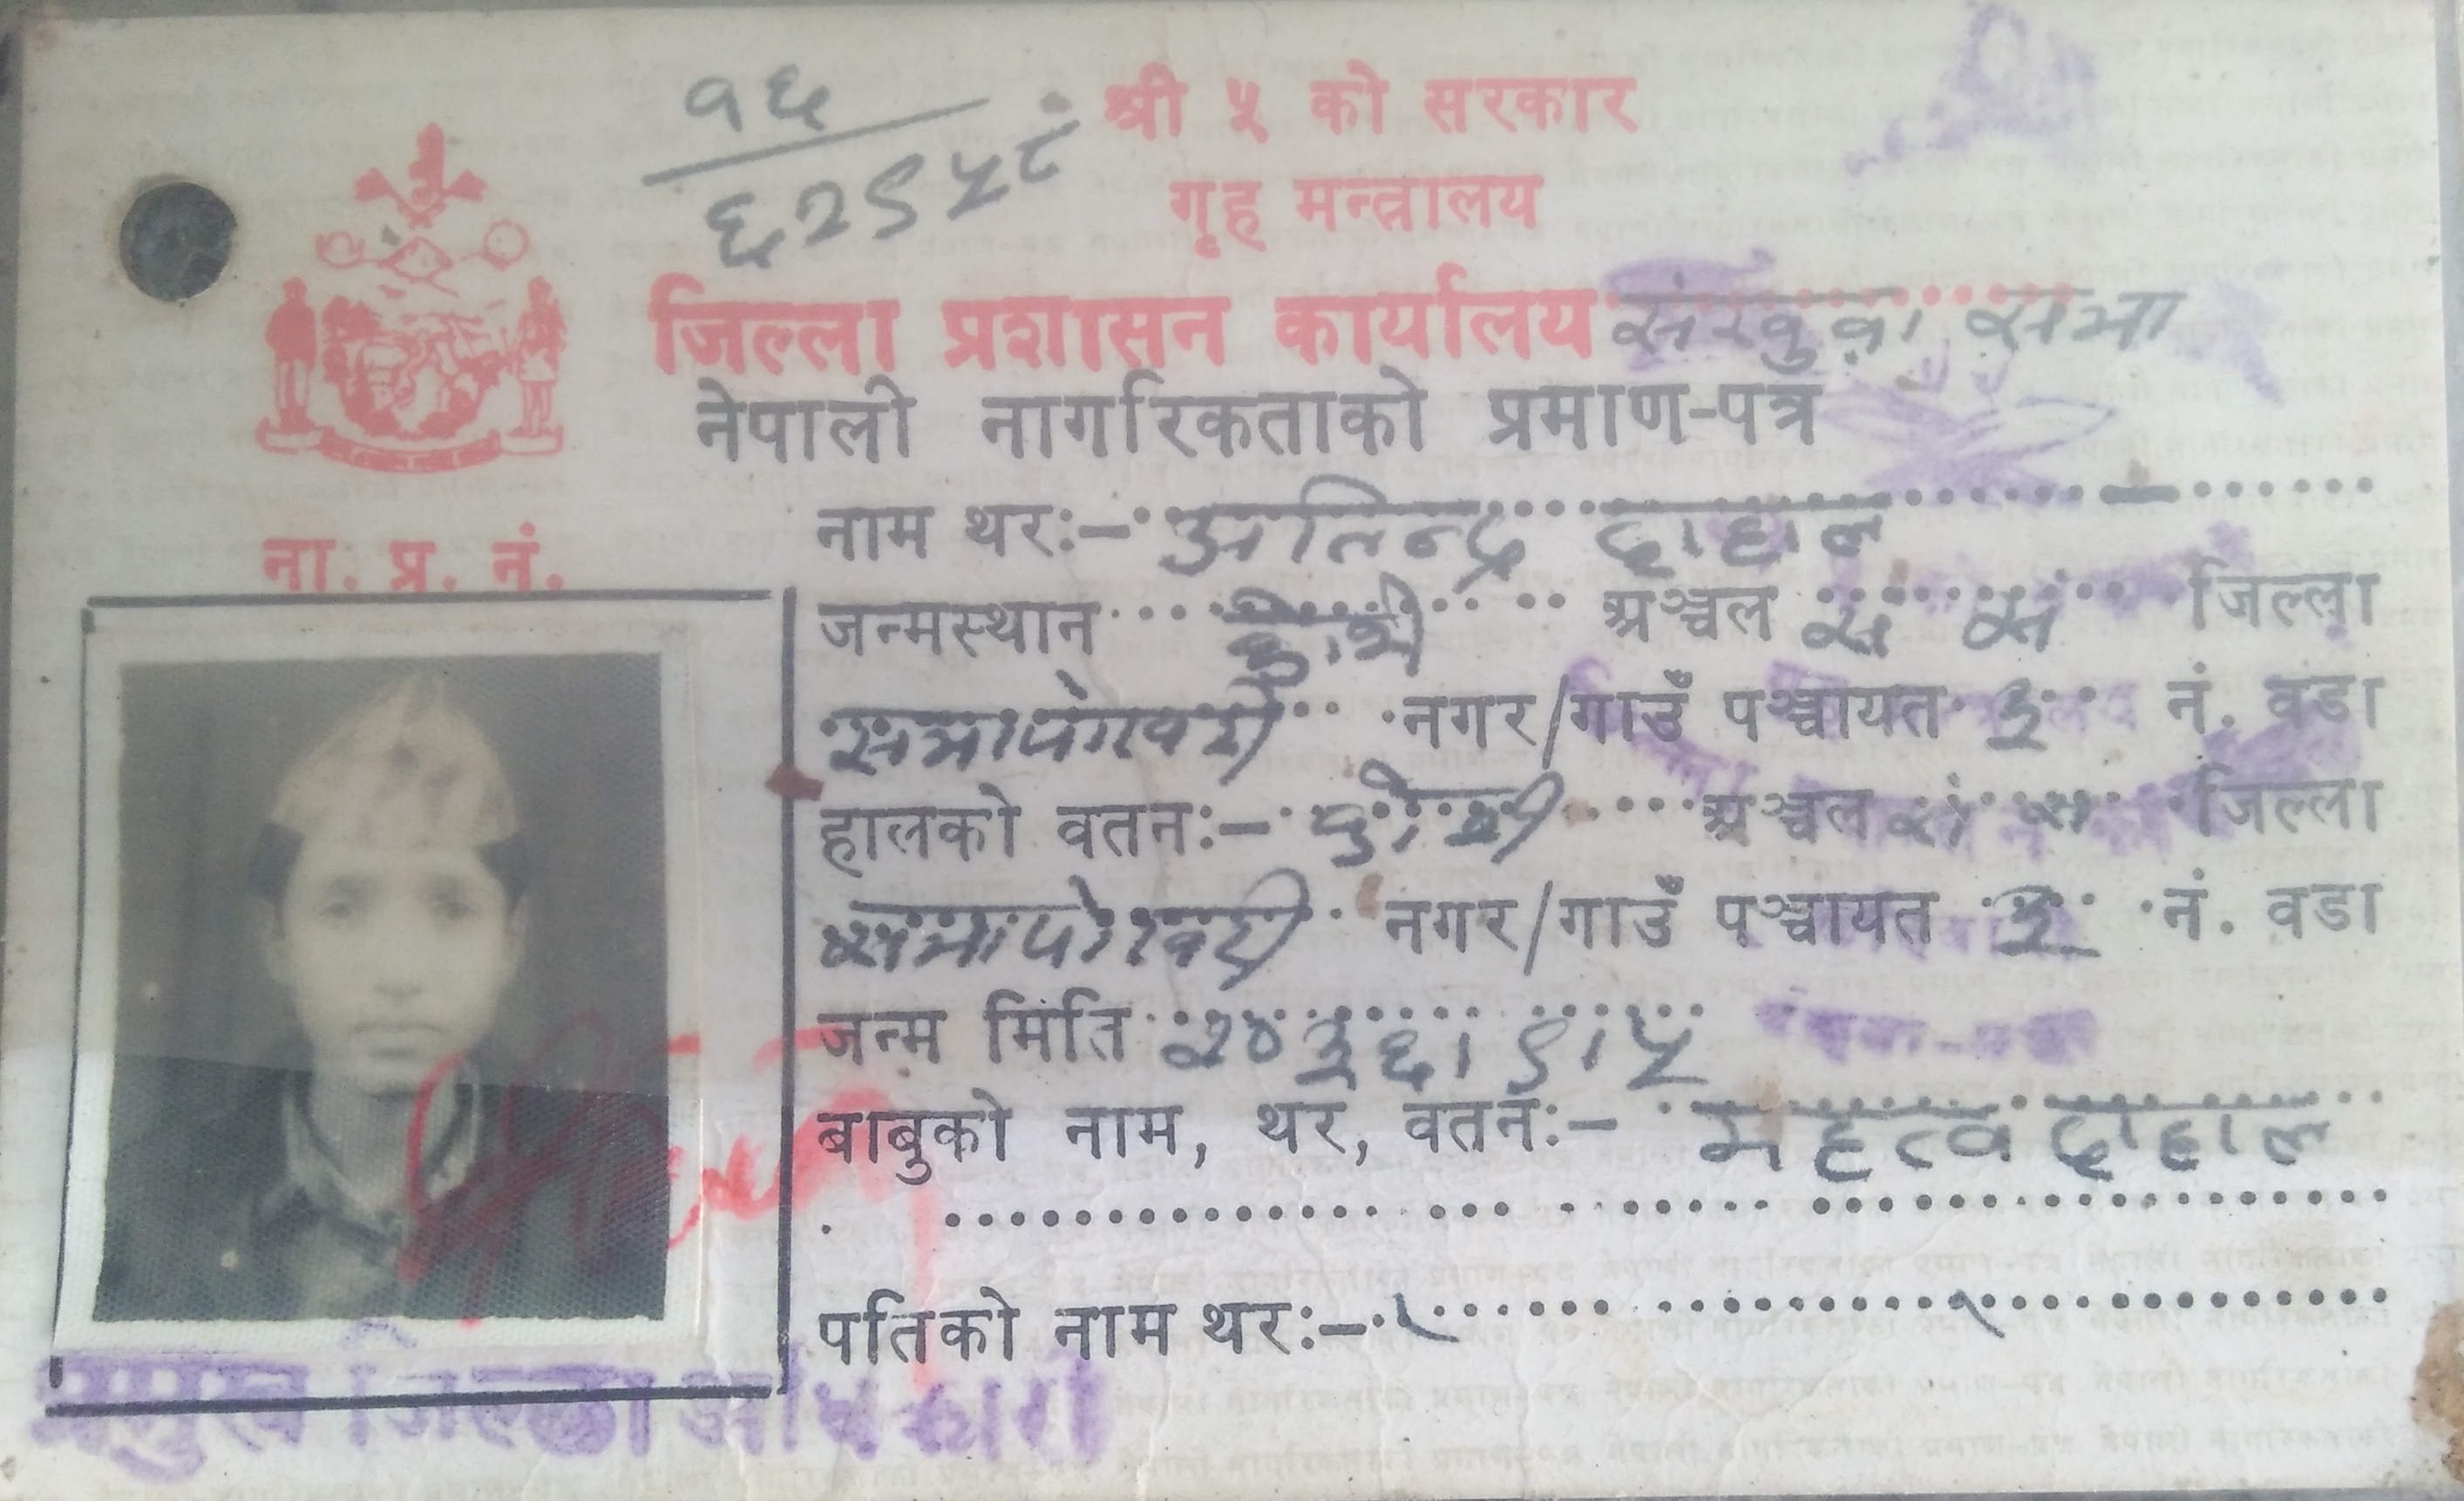 १६
६२९५८
श्री ५ को सरकार
गृह मन्त्रालय
जिल्ला प्रशासन कार्यालय संखुवा सभा
नेपाली नागरिकताको प्रमाण-पत्र
ना. प्र. नं.
नाम थरः- अतिन्द्र दाहाल
जन्मस्थान कोशी अञ्चल सं स जिल्ला
सभापोखरी नगर/गाउँ पञ्चायत ३ नं. वडा
हालको वतनः- कोशी अञ्चल सं स जिल्ला
सभापोखरी नगर/गाउँ पञ्चायत ३ नं. वडा
जन्म मिति २०३६।९।५
बाबुको नाम, थर, वतनः- महत्व दाहाल
पतिको नाम थरः-
प्रमुख जिल्ला अधिकारी